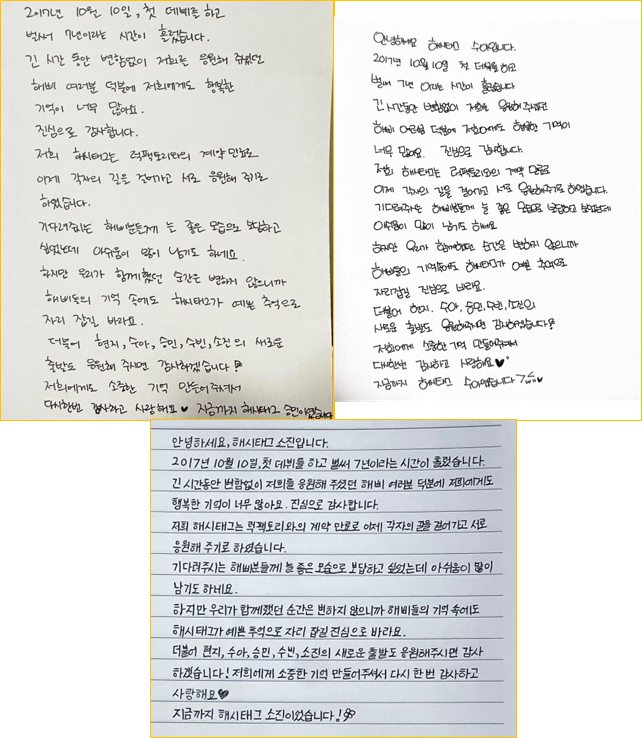 2017년 10월 10일, 첫 데뷔를 하고
벌써 7년이라는 시간이 흘렀습니다.
긴 시간 동안 변함없이 저희를 응원해 주셨던
해삐 여러분 덕분에 저희에게도 행복한
기억이 너무 많아요.
진심으로 감사합니다.
저희 해시태그는 럭팩토리와의 계약 만료로
이제 각자의 길을 걸어가고 서로 응원해 주기로
하였습니다.
기다려주시는 해삐분들께 늘 좋은 모습으로 보답하고
싶었는데 아쉬움이 많이 남기도 하네요.
하지만 우리가 함께했던 순간은 변하지 않으니까
해삐들의 기억 속에도 해시태그가 예쁜 추억으로
자리 잡길 바라요.
더불어 현지, 수아, 승민, 수빈, 소진의 새로운
출발도 응원해 주시면 감사하겠습니다
저희에게도 소중한 기억 만들어주셔서
다시한번 감사하고 사랑해요 ♥ 지금까지 해시태그 승민이었습니다
안녕하세요 해시태그 수아입니다.
2017년 10월 10일 첫 데뷔를 하고
벌써 7년 이라는 시간이 흘렀습니다
긴 시간동안 변함없이 저희를 응원해 주셨던
해삐 여러분 덕분에 저희에게도 행복한 기억이
너무 많아요. 진심으로 감사합니다.
저희 해시태그는 럭팩토리와의 계약 만료로
이제 각자의 길을 걸어가고 서로 응원해주기로 하였습니다.
기다려주시는 해삐분들께 늘 좋은 모습으로 보답하고 싶었는데
아쉬움이 많이 남기도 하네요
하지만 우리가 함께했던 순간은 변하지 않으니까
해삐들의 기억속에도 해시태그가 예쁜 추억으로
자리잡길 진심으로 바라요.
더불어 현지, 수아, 승민, 수빈, 소진의
새로운 출발도 응원해주시면 감사하겠습니다!
저희에게 소중한 기억 만들어주셔서
다시한번 감사하고 사랑해요♥
지금까지 해시태그 수아였습니다
안녕하세요, 해시태그 소진입니다.
2017년 10월 10일, 첫 데뷔를 하고 벌써 7년이라는 시간이 흘렀습니다.
긴 시간동안 변함없이 저희를 응원해 주셨던 해삐 여러분 덕분에 저희에게도
행복한 기억이 너무 많아요. 진심으로 감사합니다.
저희 해시태그는 럭팩토리와의 계약 만료로 이제 각자의 길을 걸어가고 서로
응원해 주기로 하였습니다.
기다려주시는 해삐분들께 늘 좋은 모습으로 보답하고 싶었는데 아쉬움이 많이
남기도 하네요.
하지만 우리가 함께했던 순간은 변하지 않으니까 해삐들의 기억 속에도
해시태그가 예쁜 추억으로 자리 잡길 진심으로 바라요.
더불어 현지, 수아, 승민, 수빈, 소진의 새로운 출발도 응원해주시면 감사
하겠습니다! 저희에게 소중한 기억 만들어주셔서 다시 한 번 감사하고
사랑해요♥
지금까지 해시태그 소진이었습니다!